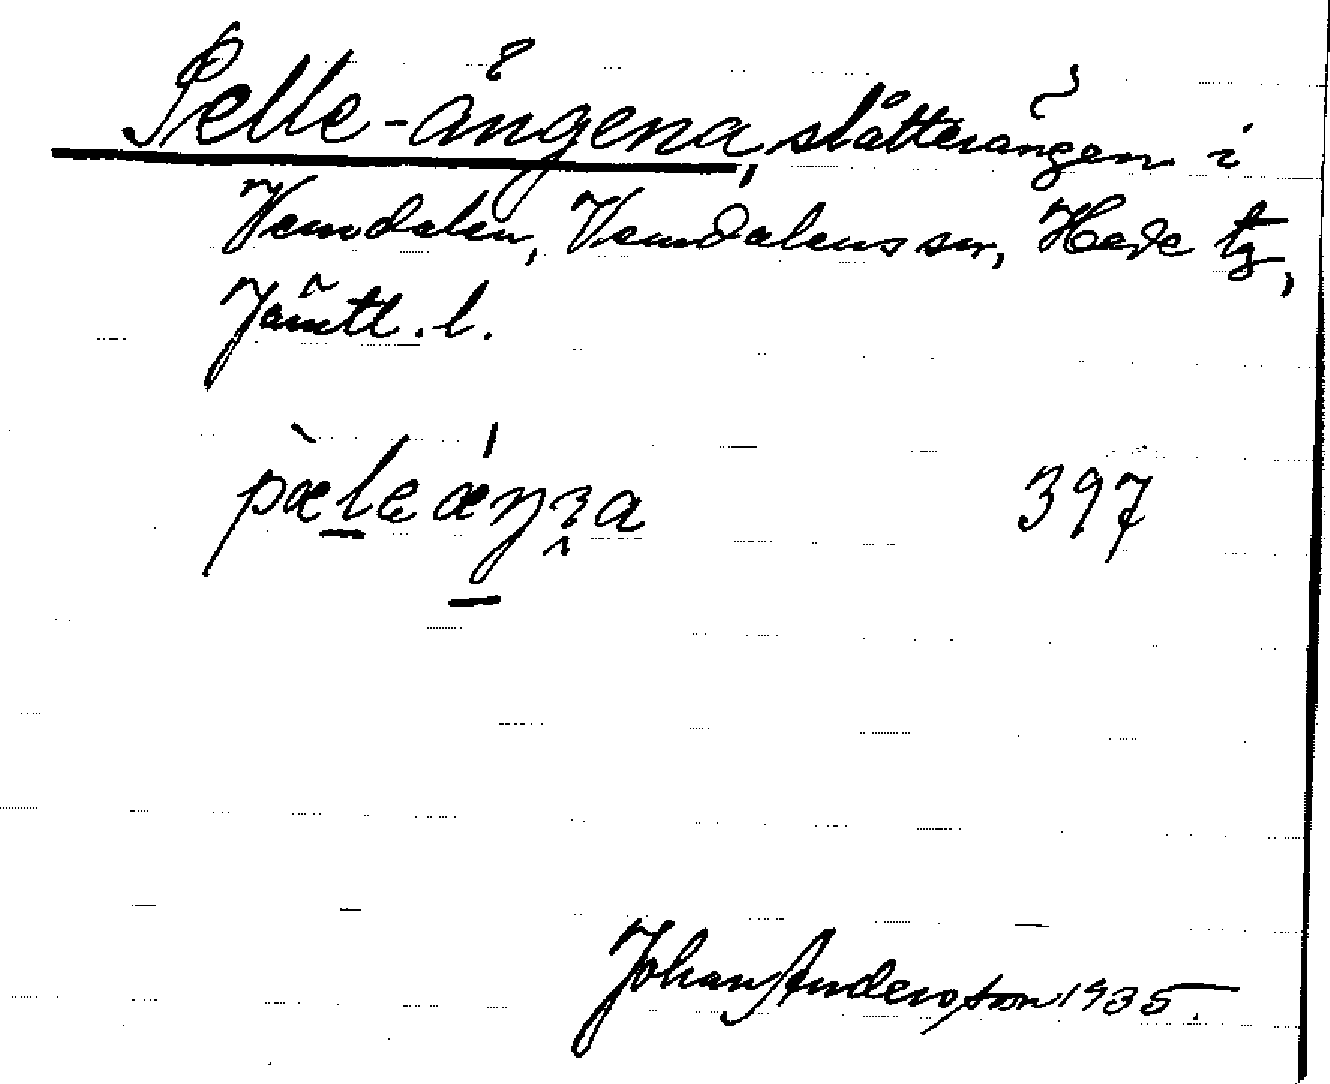 Pelle-ängena, slåtterängen i
Vemdalen, Vemdalens sn, Hede tg,
Jämtl. l.
pæ̀leǽŋɜa 397
Johan Anderson 1935.